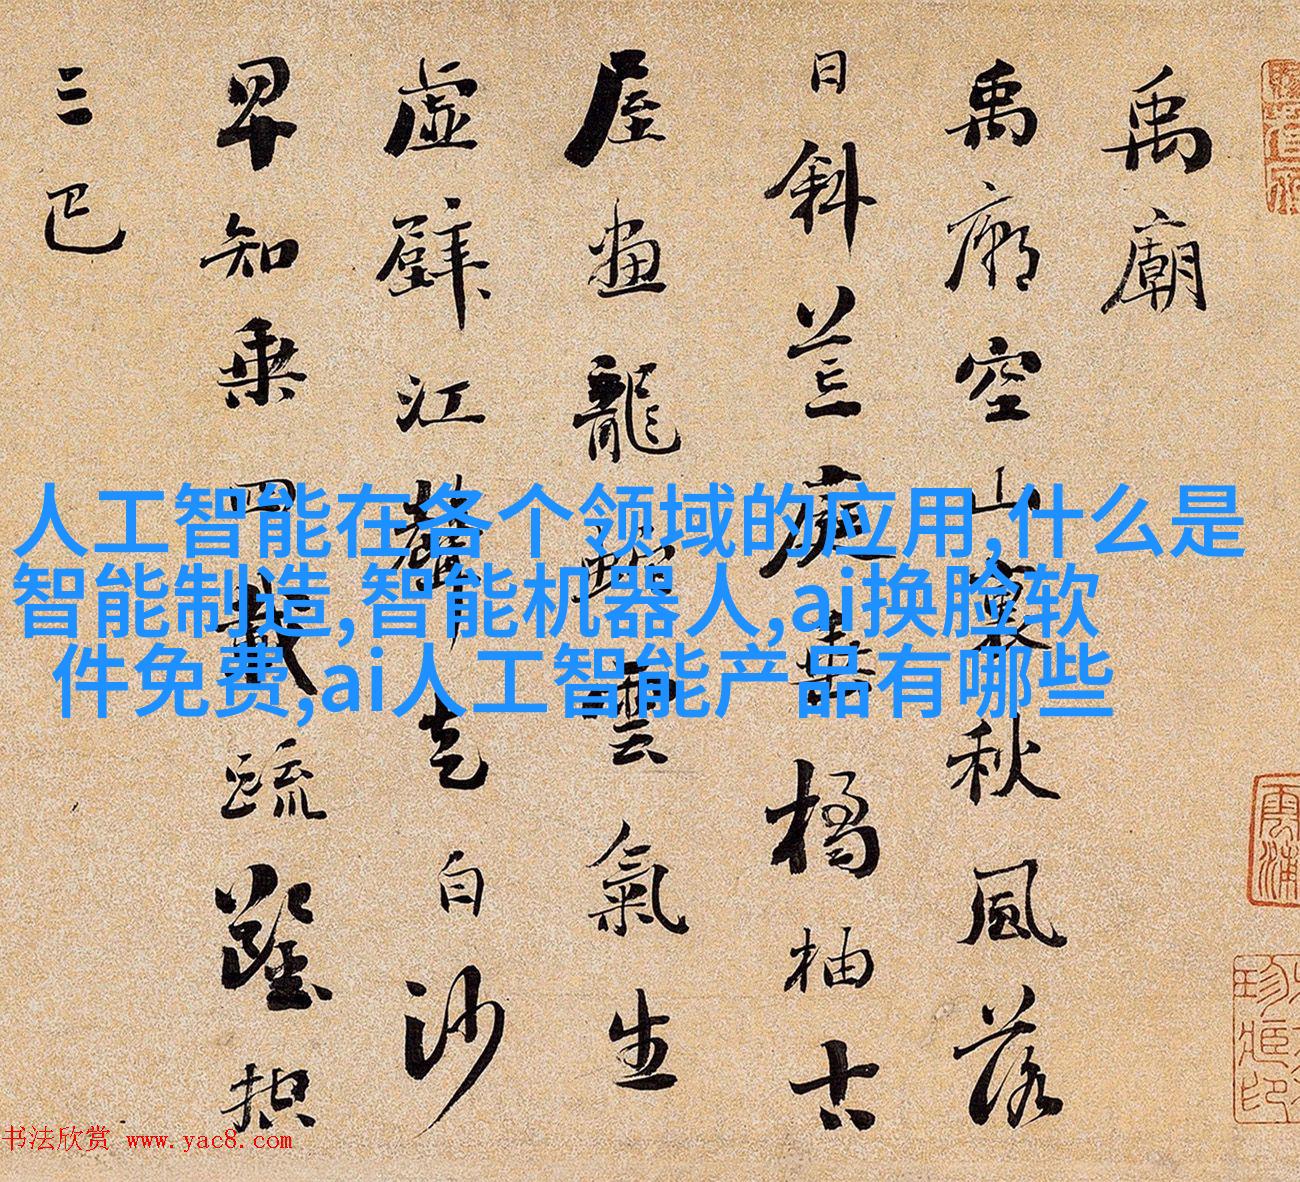 禹廟
禹廟空山裏秋風落
日斜荒庭垂橘柚古
屋畫龍蛇雲氣生
虛壁江聲走白沙
早知乘四載疏鑿控
三巴
人工智能在各个领域的应用,什么是
智能制造,智能机器人,ai换脸软
件免费,ai人工智能产品有哪些
书法欣赏 www.yac8.com